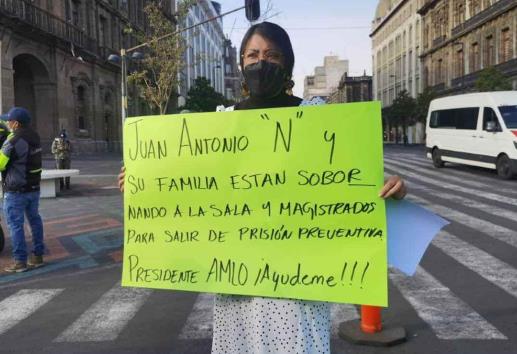 JUAN ANTONIO "N" Y
SU FAMILIA ESTAN SOBOR
NANDO A LA SALA Y MAGISTRADOS
PARA SALIR DE PRISIÓN PREVENTIVA
PRESIDENTE AMLO ¡AYUDEME!!!